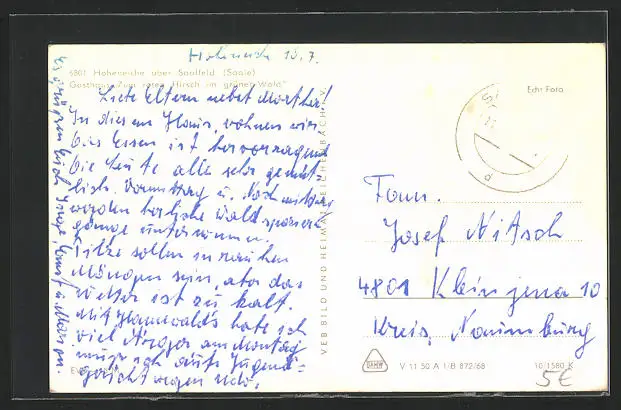 Hoheneiche 10.7.
6801 Hoheneiche über Saalfeld (Saale)
Gasthaus "Zum roten Hirsch im grünen Wald"
Liebe Eltern nebst Marthel!
In diesem Haus, wohnen wir.
Das Essen ist hervorragend
Die Leute alle sehr gemüt-
lich. Vormittag u. Nachmittag
werden herrliche Waldspazier-
gänge unternommen.
Pilze sollen in rauhen
Mengen sein, aber das
Wetter ist zu kalt.
Mit habe ich
viel Ärger am Montag
muss ich aufs Jugend-
gericht wegen Udo.
Es grüßen Euch
VEB BILD UND HEIMAT REICHENBACH i. V.
Echt Foto
Fam.
Josef Nitsch
4801 Kleinjena 10
Kreis, Naumburg
V 11 50 A 1/B 872/68
10/1580 K
5€